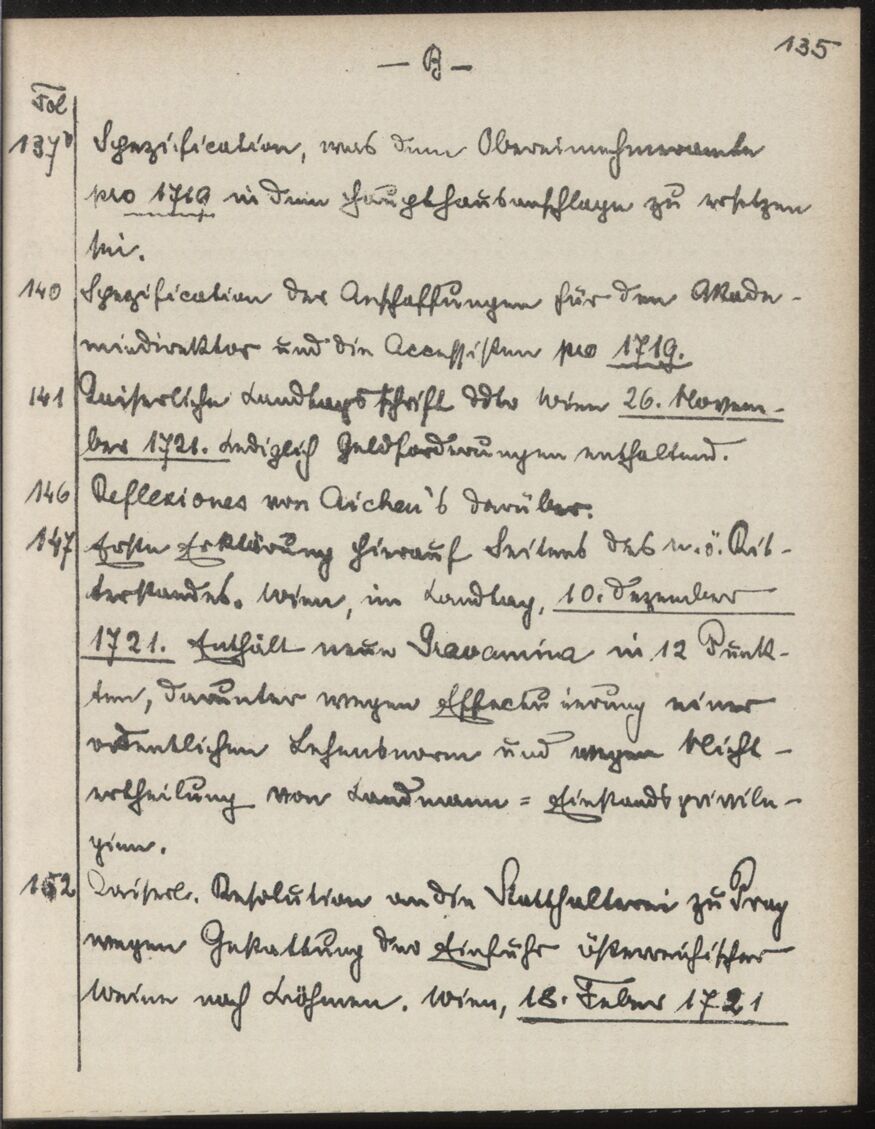 135
— B —
Fol
137v Spezification, was dem Obereinnehmeramte
pro 1719 in dem Haupthausanschlage zu ersetzen
sei.
140 Spezification der Anschaffungen für den Akade-
miedirektor und die Accessisten pro 1719.
141 Kaiserliche Landtagsschrift ddto Wien 26. Novem-
ber 1721. Lediglich Geldforderungen enthaltend.
146 Reflexiones von Aichen's darüber.
147 Erste Erklärung hierauf Seitens des n.ö. Rit-
terstandes. Wien, im Landtag, 10. Dezember
1721. Enthält neue Gravamina in 12 Punk-
ten, darunter wegen Effectuierung einer
ordentlichen Lehensnorm und wegen Nicht-
ertheilung von Landmann = Einstandsprivile-
gien.
152 Kaiserl. Resolution an die Statthalterei zu Prag
wegen Gestattung der Einfuhr österreichischer
Weine nach Böhmen. Wien, 18. Feber 1721